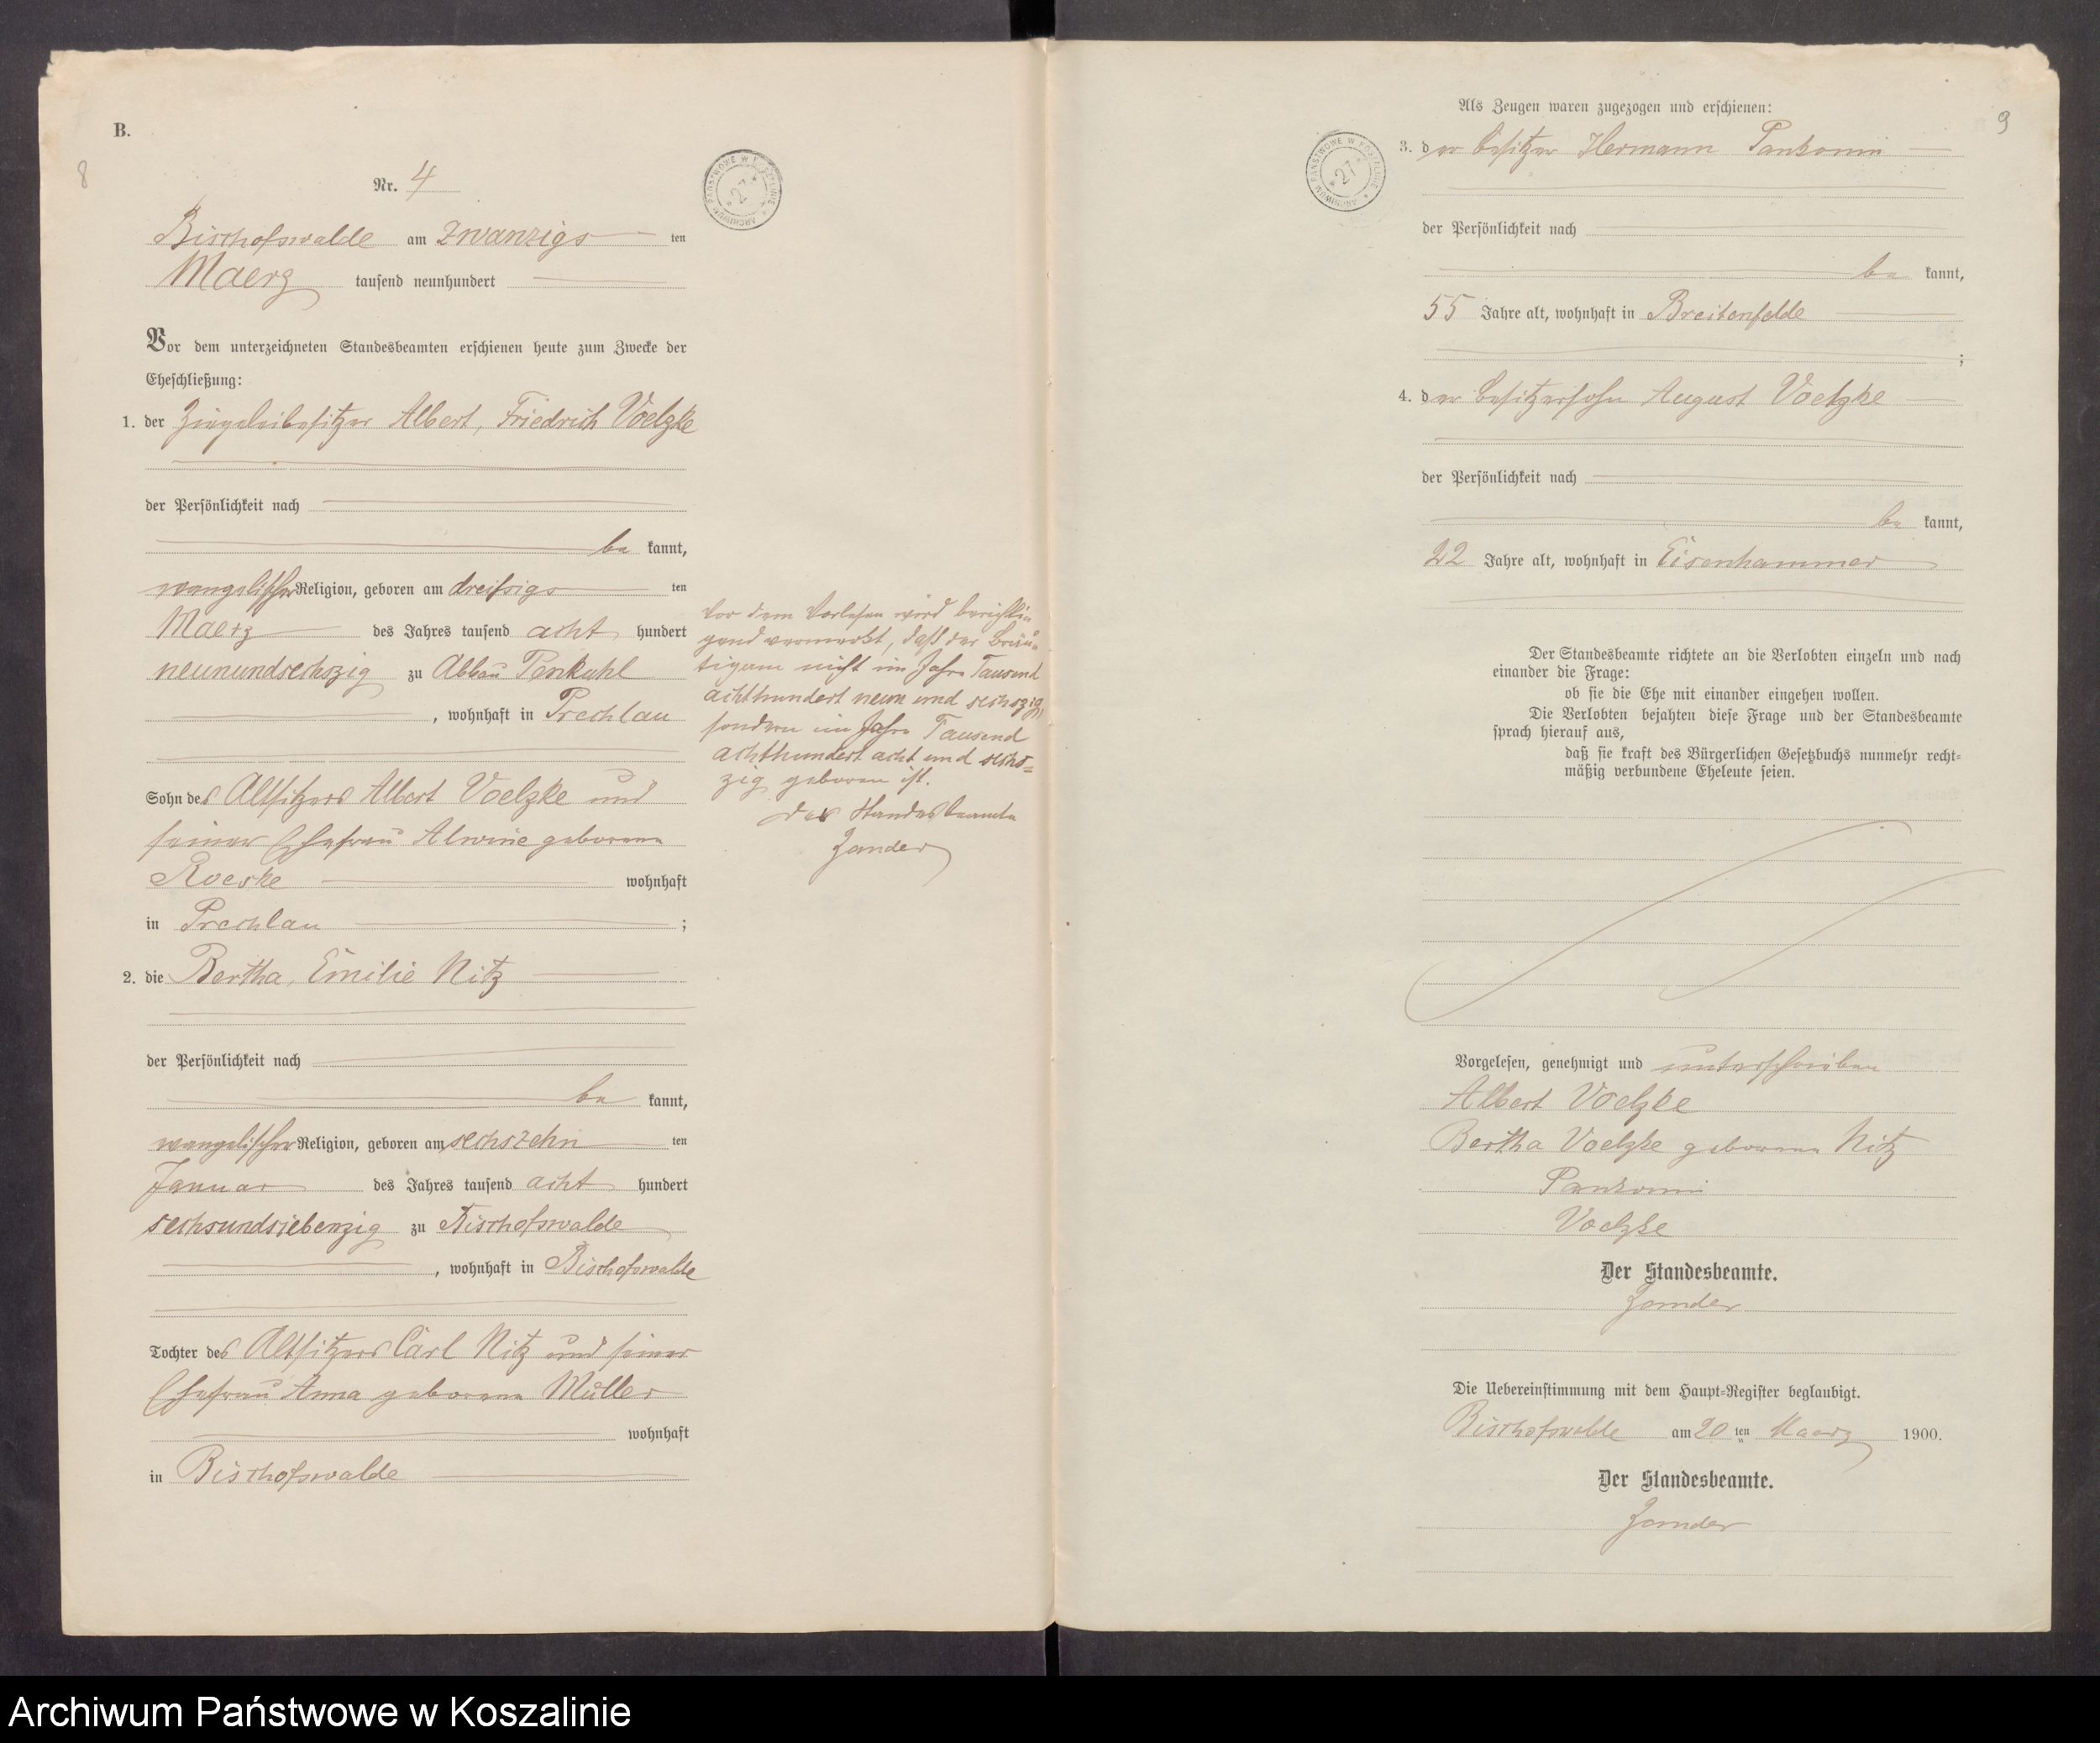 B.
8
Nr. 4
Bischofswalde am zwanzigs ten
Maerz tausend neunhundert
Vor dem unterzeichneten Standesbeamten erschienen heute zum Zwecke der
Eheschließung:
1. der Ziegeleibesitzer Albert, Friedrich Voelzke
der Persönlichkeit nach
be kannt,
evangelischer Religion, geboren am dreißigs ten
Maerz des Jahres tausend acht hundert
neunundsechszig zu Abbau Penkuhl
, wohnhaft in Prechlau
Sohn des Altsitzers Albert Voelzke und
seiner Ehefrau Alwine geborene
Roeske wohnhaft
in Prechlau ;
2. die Bertha, Emilie Nitz
der Persönlichkeit nach
be kannt,
evangelischer Religion, geboren am sechszehn ten
Januar des Jahres tausend acht hundert
sechsundsiebenzig zu Bischofswalde
, wohnhaft in Bischofswalde
Tochter des Altsitzers Carl Nitz und seiner
Ehefrau Anna geborene Müller
wohnhaft
in Bischofswalde
Vor dem Vorlesen wird berichti-
gend vermerkt, daß der Bräu-
tigam nicht im Jahre Tausend
achthundert neun und sechszig,
sondern im Jahre Tausend
achthundert acht und sechs-
zig geboren ist.
Der Standesbeamte
Zander
ARCHIWUM PAŃSTWOWE W KOSZALINIE
* 27 *
9
Als Zeugen waren zugezogen und erschienen:
3. der Besitzer Hermann Pankonin
der Persönlichkeit nach
be kannt,
55 Jahre alt, wohnhaft in Breitenfelde
;
4. der Besitzersohn August Voelzke
der Persönlichkeit nach
be kannt,
22 Jahre alt, wohnhaft in Eisenhammer
Der Standesbeamte richtete an die Verlobten einzeln und nach
einander die Frage:
ob sie die Ehe mit einander eingehen wollen.
Die Verlobten bejahten diese Frage und der Standesbeamte
sprach hierauf aus,
daß sie kraft des Bürgerlichen Gesetzbuchs nunmehr recht-
mäßig verbundene Eheleute seien.
Vorgelesen, genehmigt und unterschrieben
Albert Voelzke
Bertha Voelzke geborene Nitz
Pankonin
Voelzke
Der Standesbeamte.
Zander
Die Uebereinstimmung mit dem Haupt-Register beglaubigt.
Bischofswalde am 20 ten Maerz 1900.
Der Standesbeamte.
Zander
ARCHIWUM PAŃSTWOWE W KOSZALINIE
* 27 *
Archiwum Państwowe w Koszalinie